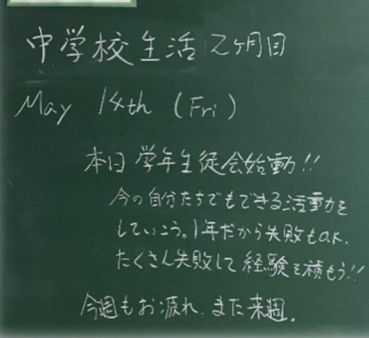 中学校生活 2ヶ月目
May 14th (Fri)
本日 学年生徒会始動!!
今の自分たちでもできる活動を
していこう。1年だから失敗もOK.
たくさん失敗して経験を積もう!!
今週もお疲れ、また来週。